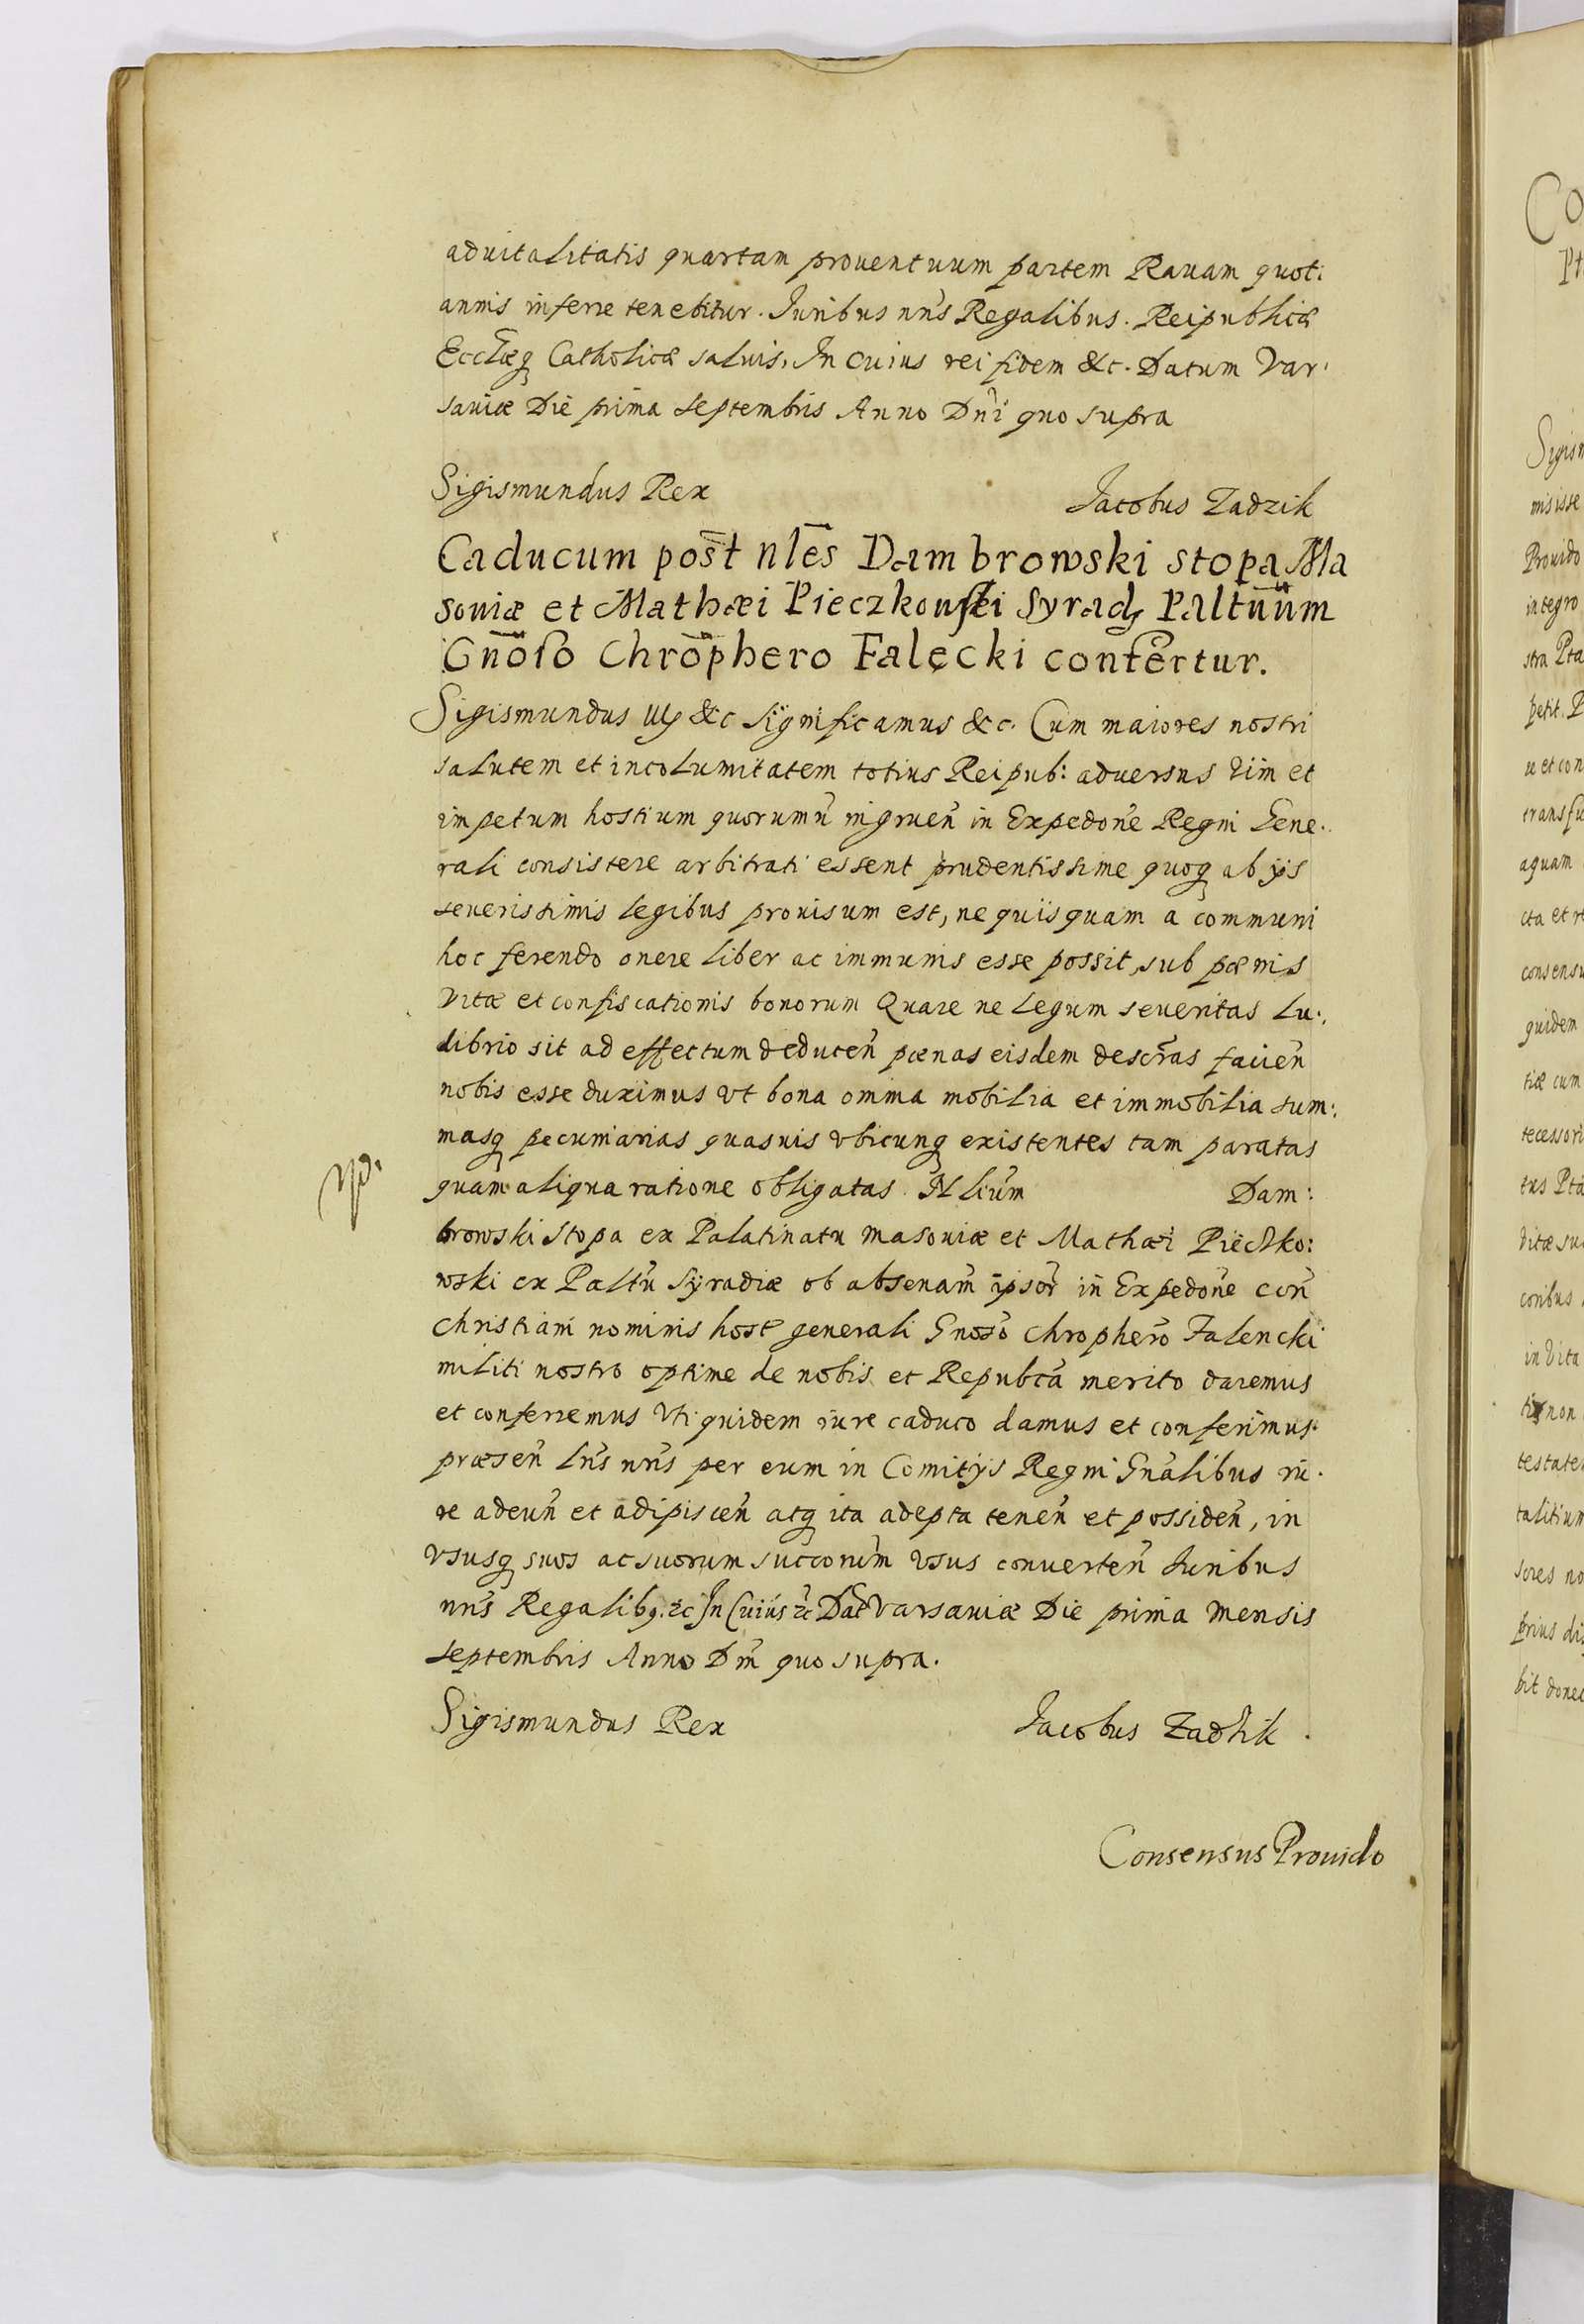 aduitalitatis quartam prouentuum partem Rauam quot:
annis inferre tenebitur. Iuribus nris Regalibus. Reipublicæ
Ecclæq Catholicæ saluis, In cuius rei fidem &c. Datum Var:
sauiæ Die prima Septembris Anno Dni quo supra
Sigismundus Rex
Jacobus Zadzik
Caducum post nles Dambrowski stopa Ma
souiæ et Mathæi Pieczkouski Syrad Paltnuum
Gnoso Chrophero Falęcki confertur.
Sigismundus III &c significamus &c. Cum maiores nostri
salutem et incolumitatem totius Reipub: aduersus vim et
impetum hostium quorumu ingruen in Expedone Regni Gene.
rali consistere arbitrati essent prudentissime quoq ab ijs
seuerissimis legibus prouisum est, ne quisquam a communi
hoc ferendo onere liber ac immunis esse possit, sub pœnis
vitæ et confiscationis bonorum Quare ne legum seueritas lu:
dibrio sit ad effectum deducen pœnas eisdem descras facien
nobis esse duximus vt bona omnia mobilia et immobilia sum:
masq pecuniarias quasuis vbicunq existentes tam paratas
quam aliqua ratione obligatas Nlium Dam:
browski Stopa ex Palatinatu Masouiæ et Mathæi Pieczko:
wski ex Paltu Syradiæ ob absenam ipsor in Expedone con
christiani nominis host generali Gnoso Chrophero Falencki
militi nostro optime de nobis et Republca merito daremus
et conferremus Vti quidem iure caduco damus et conferimus
præsen lris nris per eum in Comitijs Regni Gnalibus iu.
re adeun et adipiscen atq ita adepta tenen et possiden, in
vsusq suos ac suorum succorum vsus conuerten Iuribus
nris Regalibq. &c In Cuius &c Dat Varsauiæ Die prima Mensis
Septembris Anno Dni quo supra.
Sigismundus Rex
Jacobus Zadzik.
Consensus Prouido